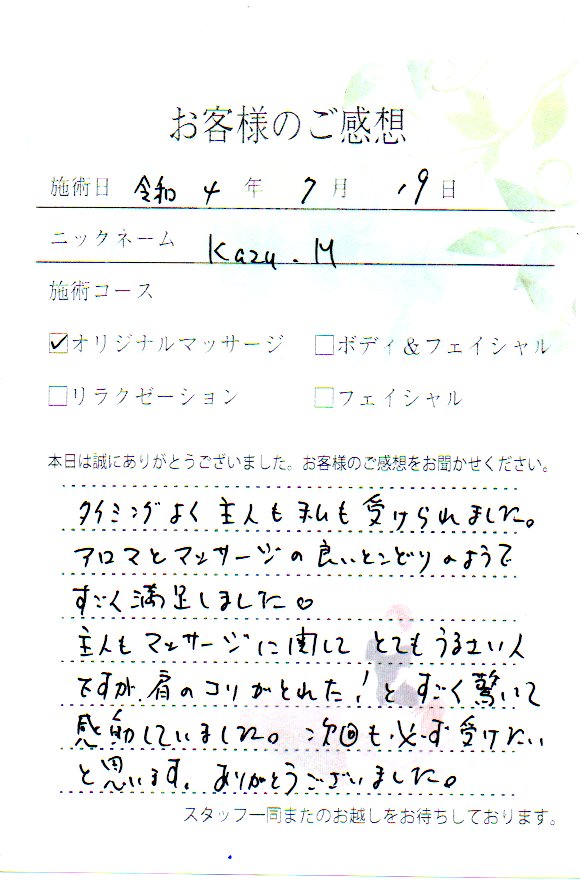 お客様のご感想
施術日 令和 4 年 7 月 19 日
ニックネーム Kazu.M
施術コース
☑オリジナルマッサージ □ボディ&フェイシャル
□リラクゼーション □フェイシャル
本日は誠にありがとうございました。お客様のご感想をお聞かせください。
タイミングよく主人も私も受けられました。
アロマとマッサージの良いとこどりのようで
すごく満足しました♡
主人もマッサージに関してとてもうるさい人
ですが、肩のコリがとれた!とすごく驚いて
感動していました。次回も必ず受けたい
と思います。ありがとうございました。
スタッフ一同またのお越しをお待ちしております。